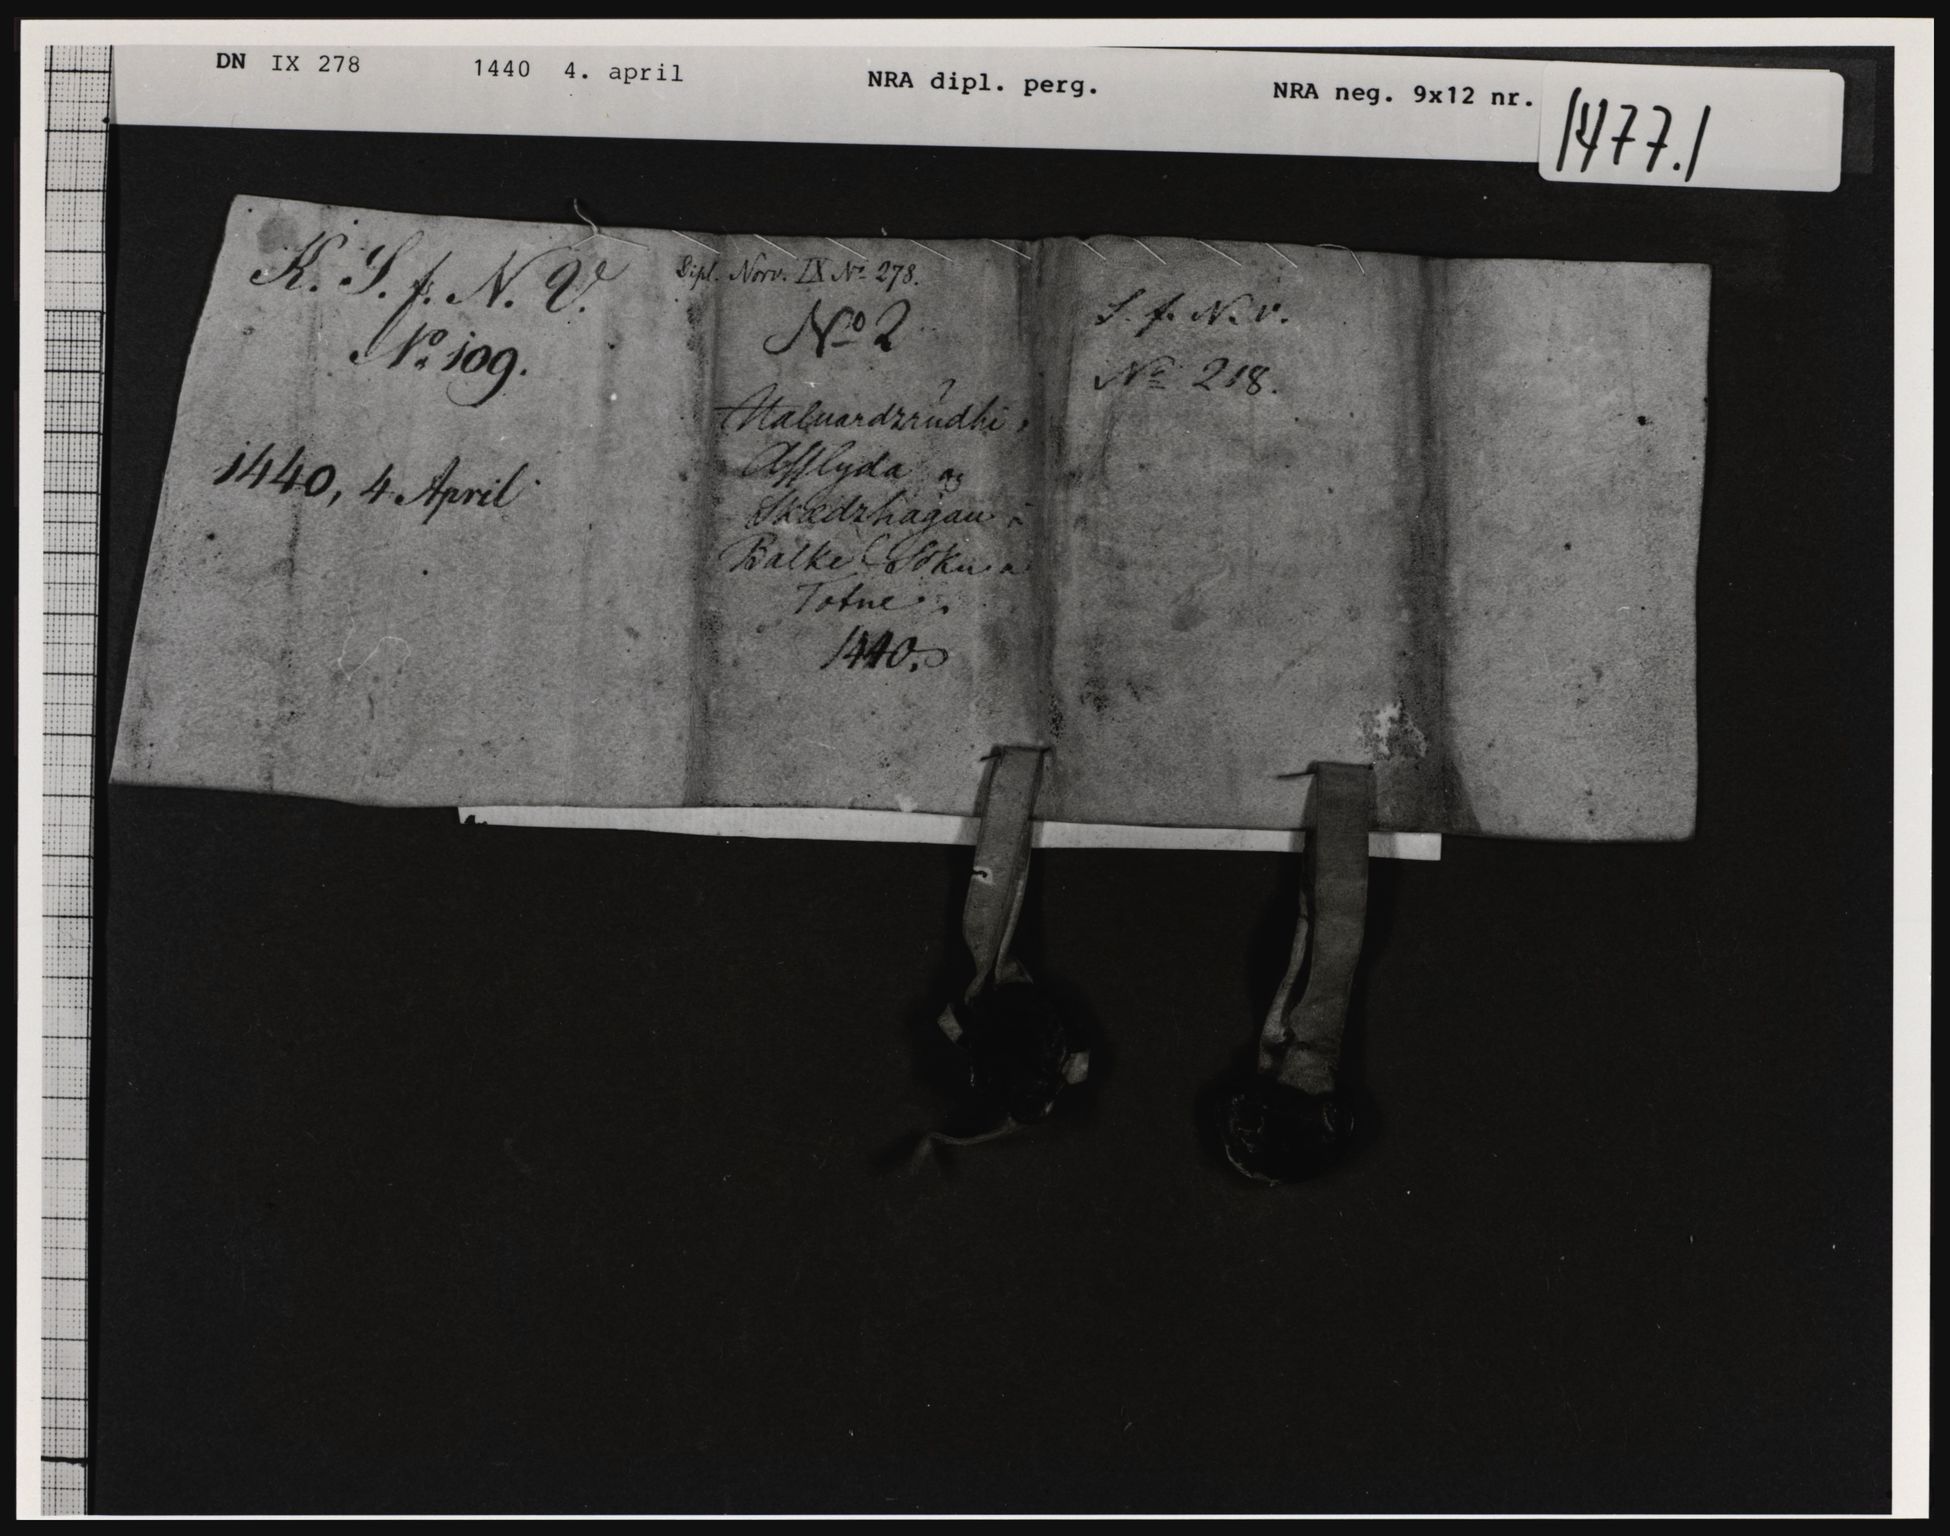 DN IX 278 1440 4. april NRA dipl. perg. NRA neg. 9x12 nr. 1477.1
K. S. f. N. V.
No 109.
1440, 4 April
Dipl. Norv. IX No 278.
No 2
Haluardzrudhi,
Afflyda og
Skædzhagan i
Balke Sokn a
Totne.
1440.
S. f. N. v.
No 218.